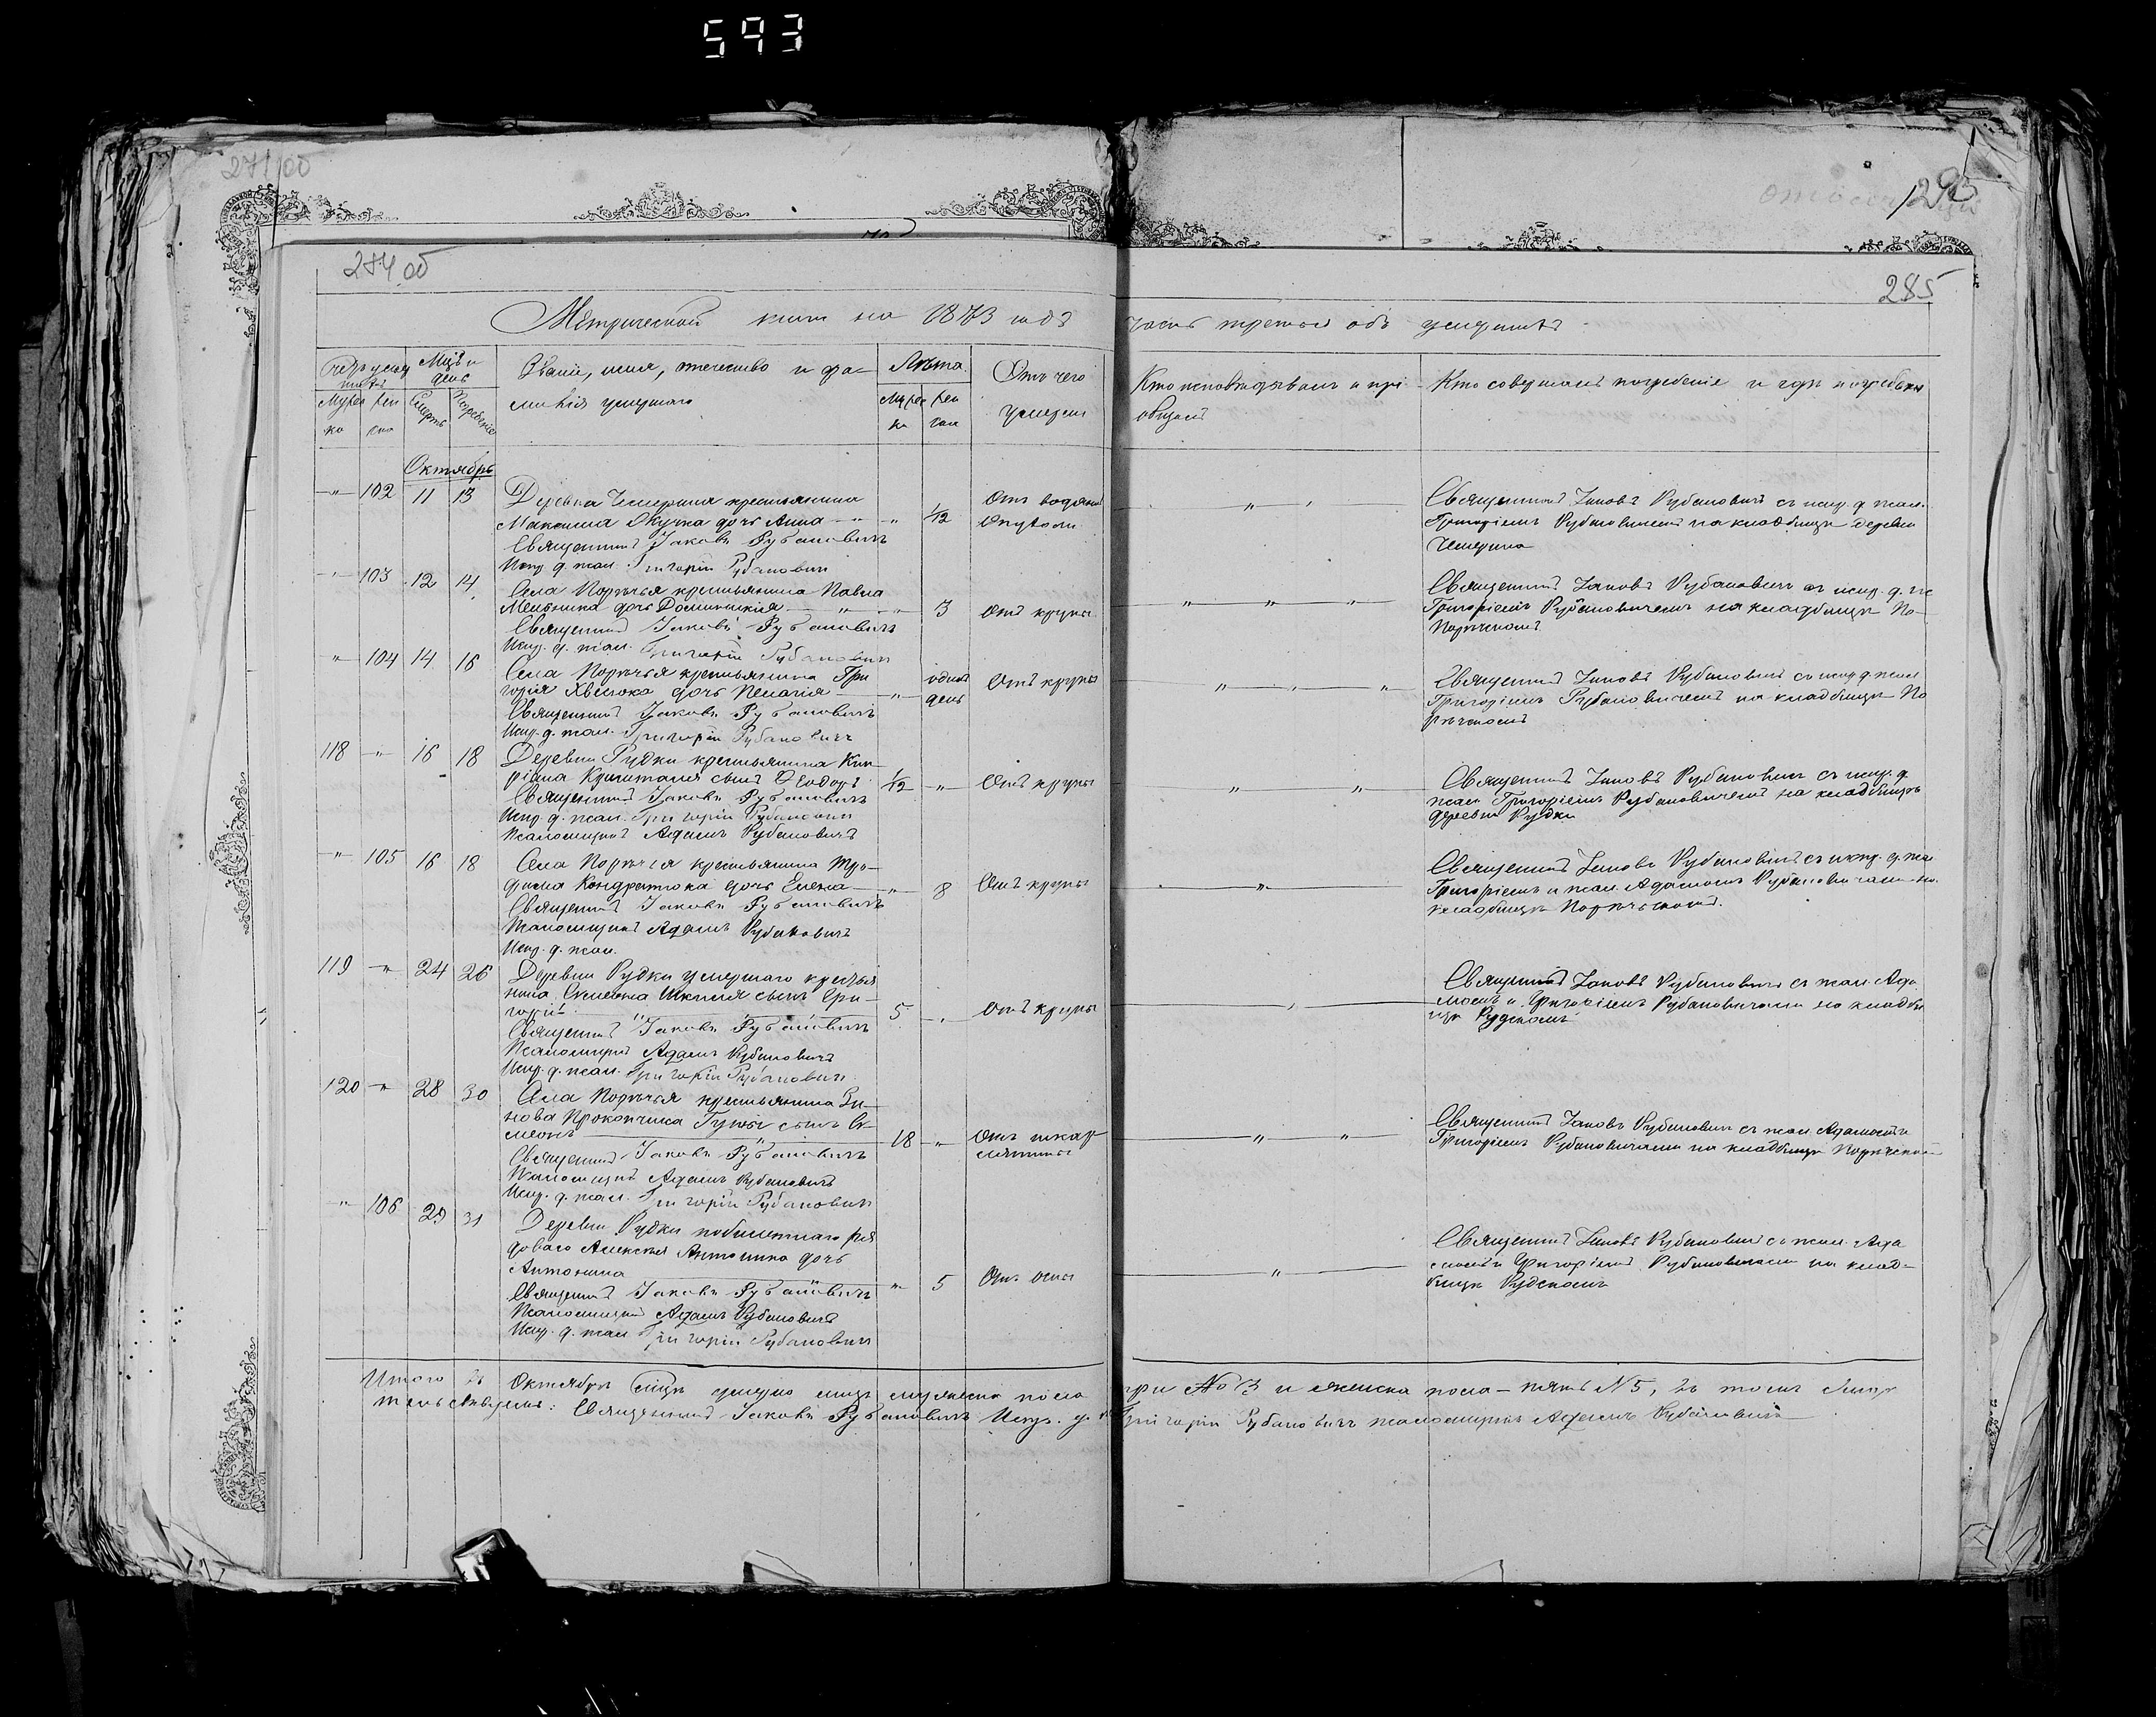 593
271 об
293
274 об
285
Метрической книги на 1873 годъ
часть третья объ умершихъ
Мѣсц и день
Званіе, имя, отчество и фа-
милія умершаго
Лѣта
Отъ чего
умеръ
Мужес ка
Жен ска
Смерть
Погребеніе
Мужес ка
Жен ска
Кто исповѣдывалъ и прі-
общалъ
Кто совершалъ погребеніе и гдѣ погребены
Октябрь
-"- 102 11 13
Деревни Чемерина крестьянина
дочь Анна -"- " 1/12
Отъ водяной
опухоли
Священникъ Іаковъ Рубановичъ
Исп. д. псал. Григорій Рубановичъ
Священникъ Іаковъ Рубановичъ съ исп. д. псал.
Григоріемъ Рубановичемъ на кладбищѣ деревни
Чемерина
-"- 103 12 14
Села Порѣчья крестьянина Павла
Мельника дочь Доминикія -"- " 3
Отъ крупы
Священникъ Іаковъ Рубановичъ
Исп. д. псал. Григорій Рубановичъ
Священникъ Іаковъ Рубановичъ съ исп. д. пс
Григоріемъ Рубановичемъ на кладбищѣ По-
Порѣчскомъ
-"- 104 14 16
Села Порѣчья крестьянина Гри
горія дочь Пелагія - " - одинъ
день
Отъ крупы
Священникъ Іаковъ Рубановичъ
Исп. д. псал. Григорій Рубановичъ
Священникъ Іаковъ Рубановичъ съ исп. д. псал
Григоріемъ Рубановичемъ на кладбищѣ По
рѣчскомъ
118 -"- 16 18
Деревни Рудки крестьянина Кип
ріана сынъ Ѳеодоръ 1/12 -"-
Отъ крупы
Священникъ Іаковъ Рубановичъ
Исп. д. псал. Григорій Рубановичъ
Псаломщикъ Адамъ Рубановичъ
Священникъ Іаковъ Рубановичъ съ исп. д.
псал Григоріемъ Рубановичемъ на кладбищѣ
деревни Рудки
-"- 105 16 18
Села Порѣчья крестьянина Тро-
фима Кондратюка дочь Елена - " - 8
Отъ крупы
Священникъ Іаковъ Рубановичъ
Псаломщикъ Адамъ Рубановичъ
Исп. д. псал.
Священникъ Іаковъ Рубановичъ съ исп. д. пса
Григоріемъ и псал. Адамомъ Рубановичами на
кладбищѣ Порѣчскомъ.
119 -"- 24 26
Деревни Рудки умершаго крестья
нина сынъ Гри-
горій 5
Отъ крупы
Священникъ Іаковъ Рубановичъ
Псаломщикъ Адамъ Рубановичъ
Исп. д. псал. Григорій Рубановичъ
Священникъ Іаковъ Рубановичъ съ псал. Ада
момъ и Григоріемъ Рубановичами на кладби
щѣ Рудскомъ
120 -"- 28 30
Села Порѣчья крестьянина
Прокопчика сынъ Си-
меонъ 18 -"-
Отъ шкар
лятины
Священникъ Іаковъ Рубановичъ
Псаломщикъ Адамъ Рубановичъ
Исп. д. псал. Григорій Рубановичъ
Священникъ Іаковъ Рубановичъ съ псал. Адамомъ и
Григоріемъ Рубановичами на кладбищѣ Порѣчском
-"- 106 29 31
Деревни Рудки побилетнаго ря
доваго Алексѣя Антонина дочь
Антонина " 5
Отъ оспы
Священникъ Іаковъ Рубановичъ
Псаломщикъ Адамъ Рубановичъ
Исп. д. псал. Григорій Рубановичъ
Священникъ Іаковъ Рубановичъ съ псал. Ада
момъ и Григоріемъ Рубановичами на клад-
бищѣ Рудскомъ
Итого въ Октябрѣ мѣсяцѣ умерло лицъ мужеска пола три № 3 и женска пола - пять № 5, въ томъ
свидѣтельствуемъ: Священникъ Іаковъ Рубановичъ Исп. д. Григорій Рубановичъ псаломщикъ Адамъ Рубановичъ